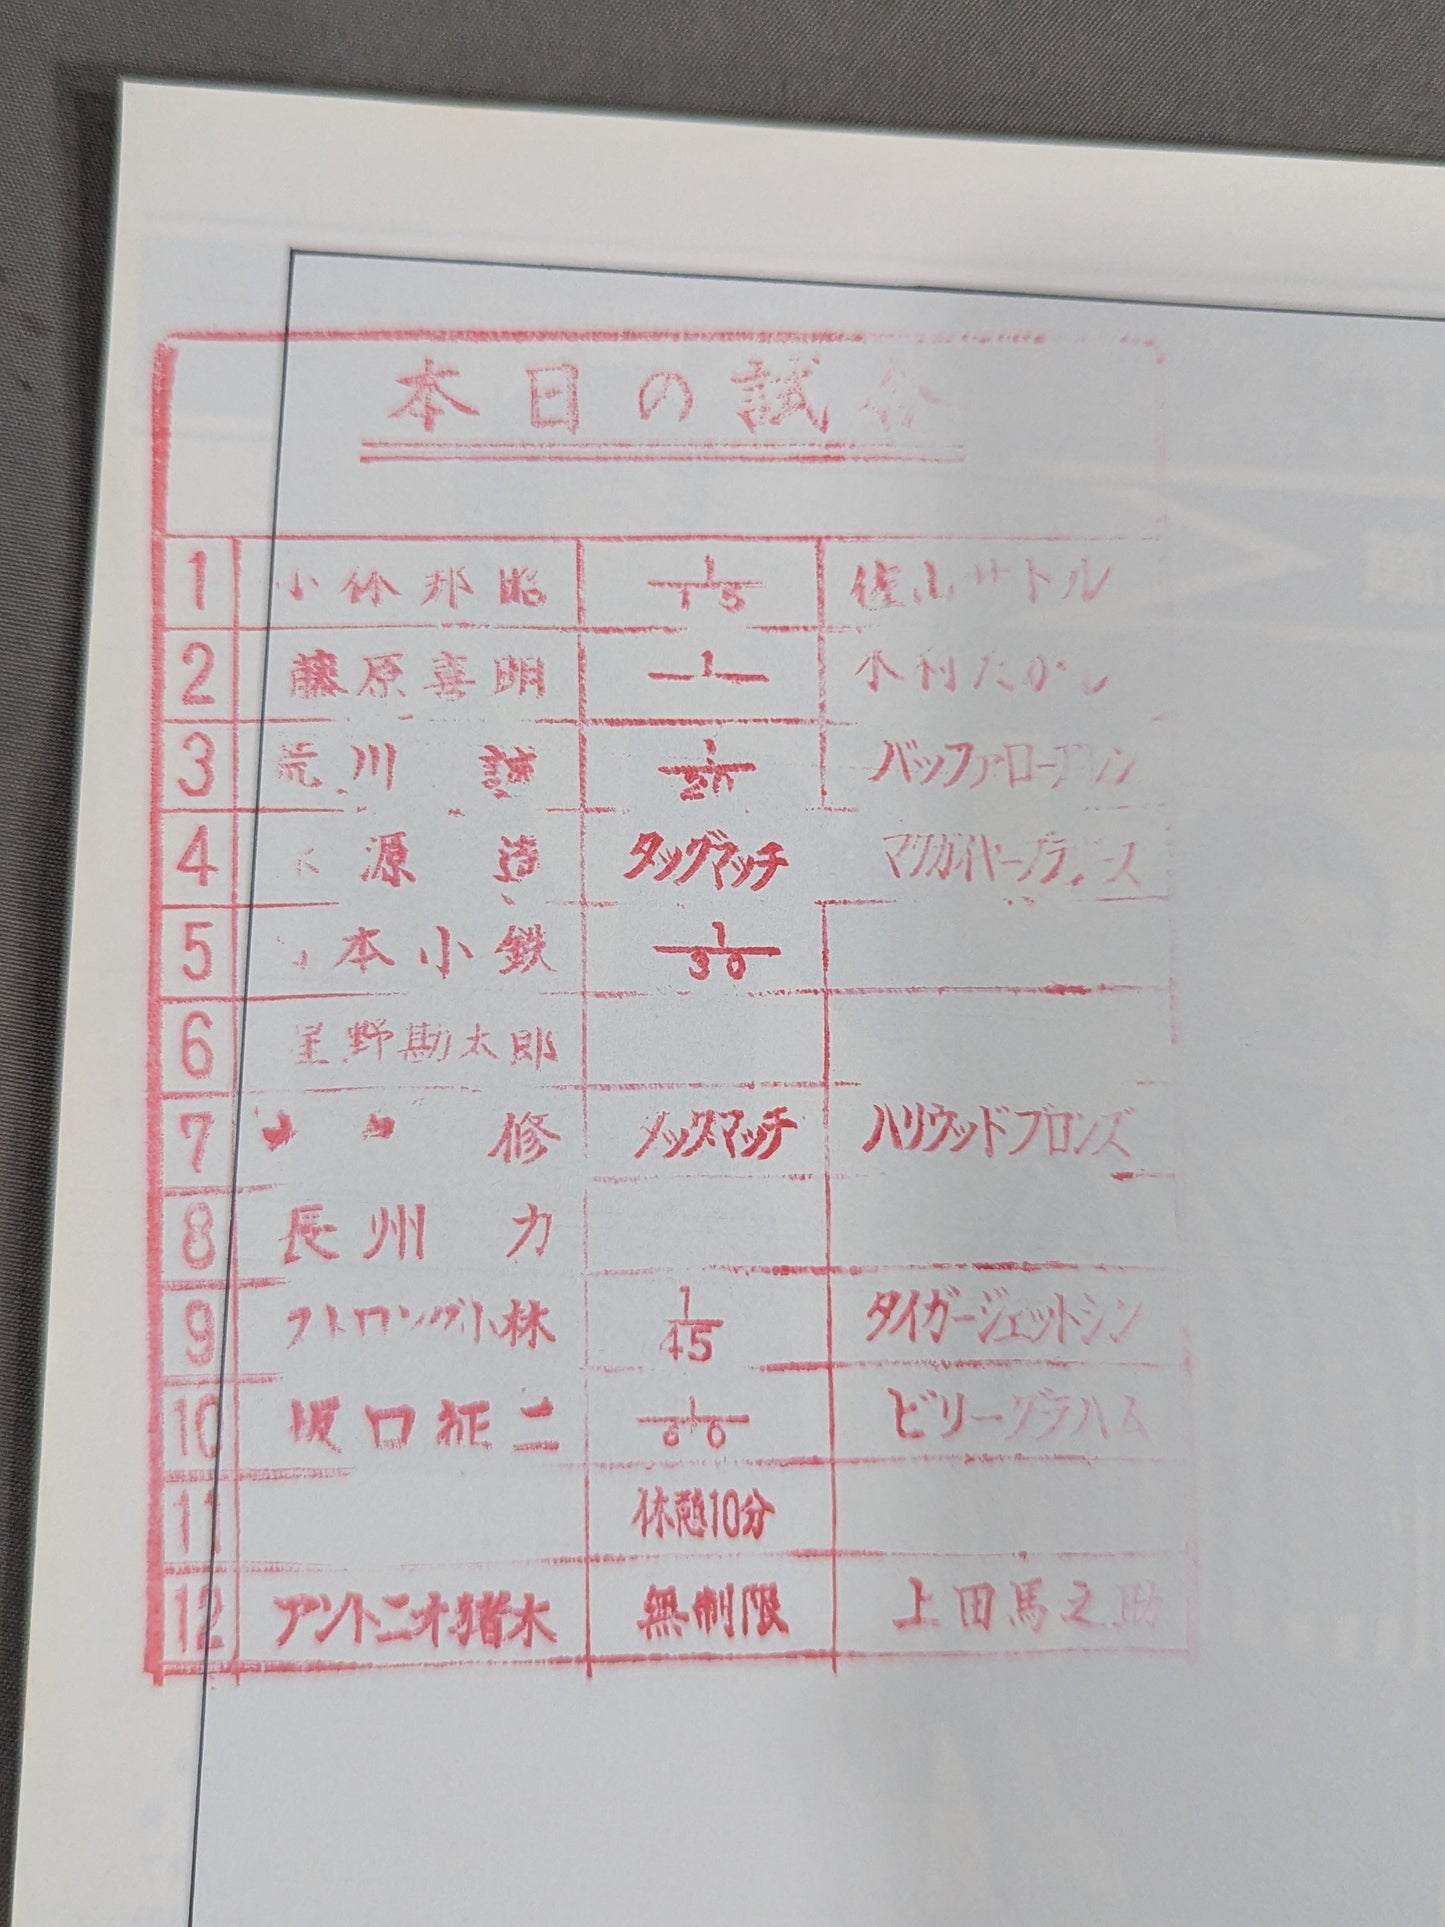 本日の試合
1 小林邦昭 1/15 佐山サトル
2 藤原喜明 1 木村たかし
3 荒川 誠 1/20 バッファローアレン
4 源 造 タッグマッチ マクガイヤーブラザース
5 本小鉄 1/30
6 星野勘太郎
7 修 タッグマッチ ハリウッドブロンズ
8 長州 力
9 ストロング小林 1/45 タイガージェットシン
10 坂口征二 1/60 ビリーグラハム
11 休憩10分
12 アントニオ猪木 無制限 上田馬之助